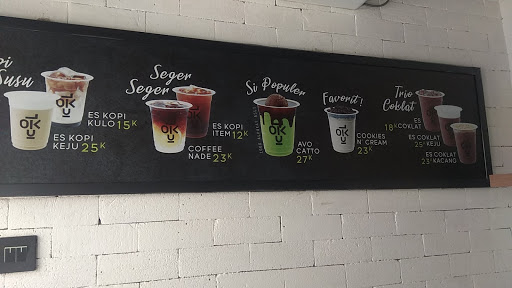 Susu
ES KOPI
KULO 15K
ES KOPI
KEJU 25K
Seger
Seger
ES KOPI
ITEM 12K
COFFEE
NADE 23K
Si Populer
AVO
CATTO
27K
Favorit!
COOKIES
N' CREAM
23K
Trio
Coklat
ES
18K COKLAT
ES COKLAT
25K KEJU
ES COKLAT
23K KACANG